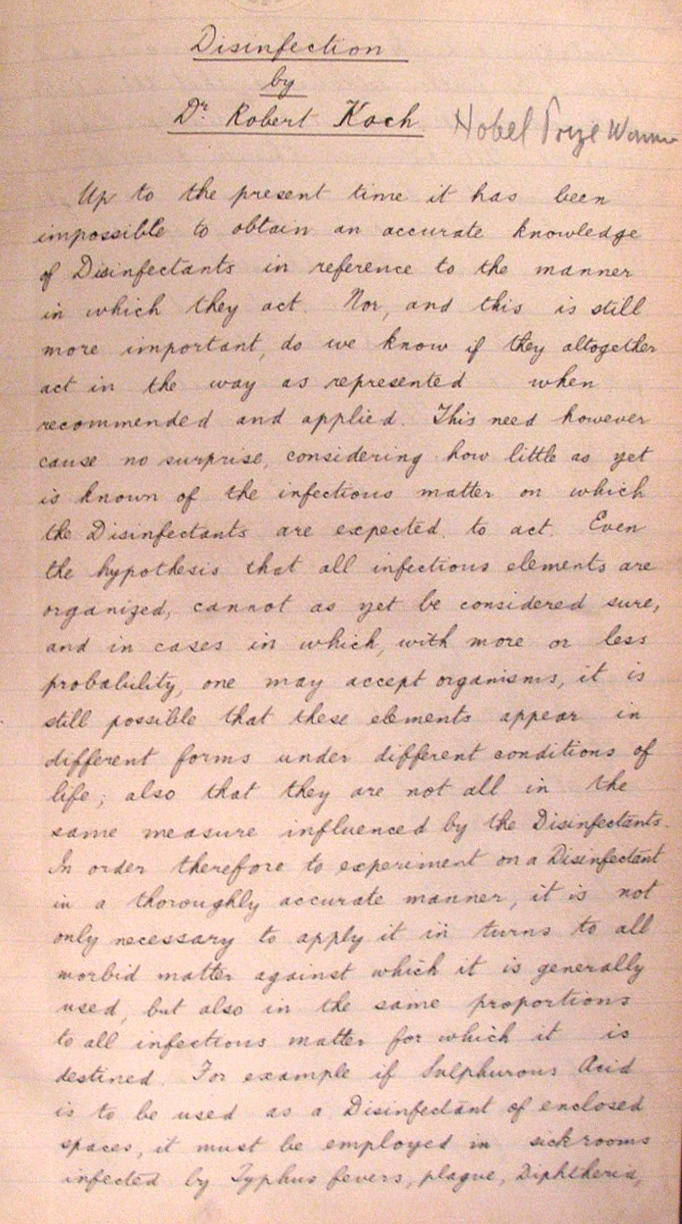 Disinfection
by
Dr. Robert Koch Nobel Prize Winner
Up to the present time it has been
impossible to obtain an accurate knowledge
of Disinfectants in reference to the manner
in which they act. Nor, and this is still
more important, do we know if they altogether
act in the way as represented when
recommended and applied. This need however
cause no surprise, considering how little as yet
is known of the infectious matter on which
the Disinfectants are expected to act. Even
the hypothesis that all infectious elements are
organized, cannot as yet be considered sure,
and in cases in which, with more or less
probability, one may accept organisms, it is
still possible that these elements appear in
different forms under different conditions of
life; also that they are not all in the
same measure influenced by the Disinfectants.
In order therefore to experiment on a Disinfectant
in a thoroughly accurate manner, it is not
only necessary to apply it in turns to all
morbid matter against which it is generally
used, but also in the same proportions
to all infectious matter for which it is
destined. For example if Sulphurous Acid
is to be used as a Disinfectant of enclosed
spaces, it must be employed in sickrooms
infected by Typhus fevers, plague, Diphtheria,